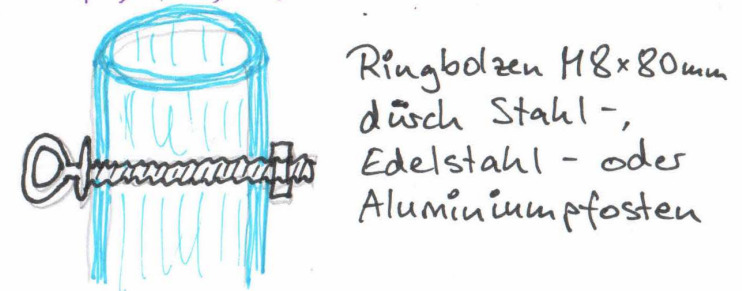 Ringbolzen M8x80mm
durch Stahl-,
Edelstahl- oder
Aluminiumpfosten